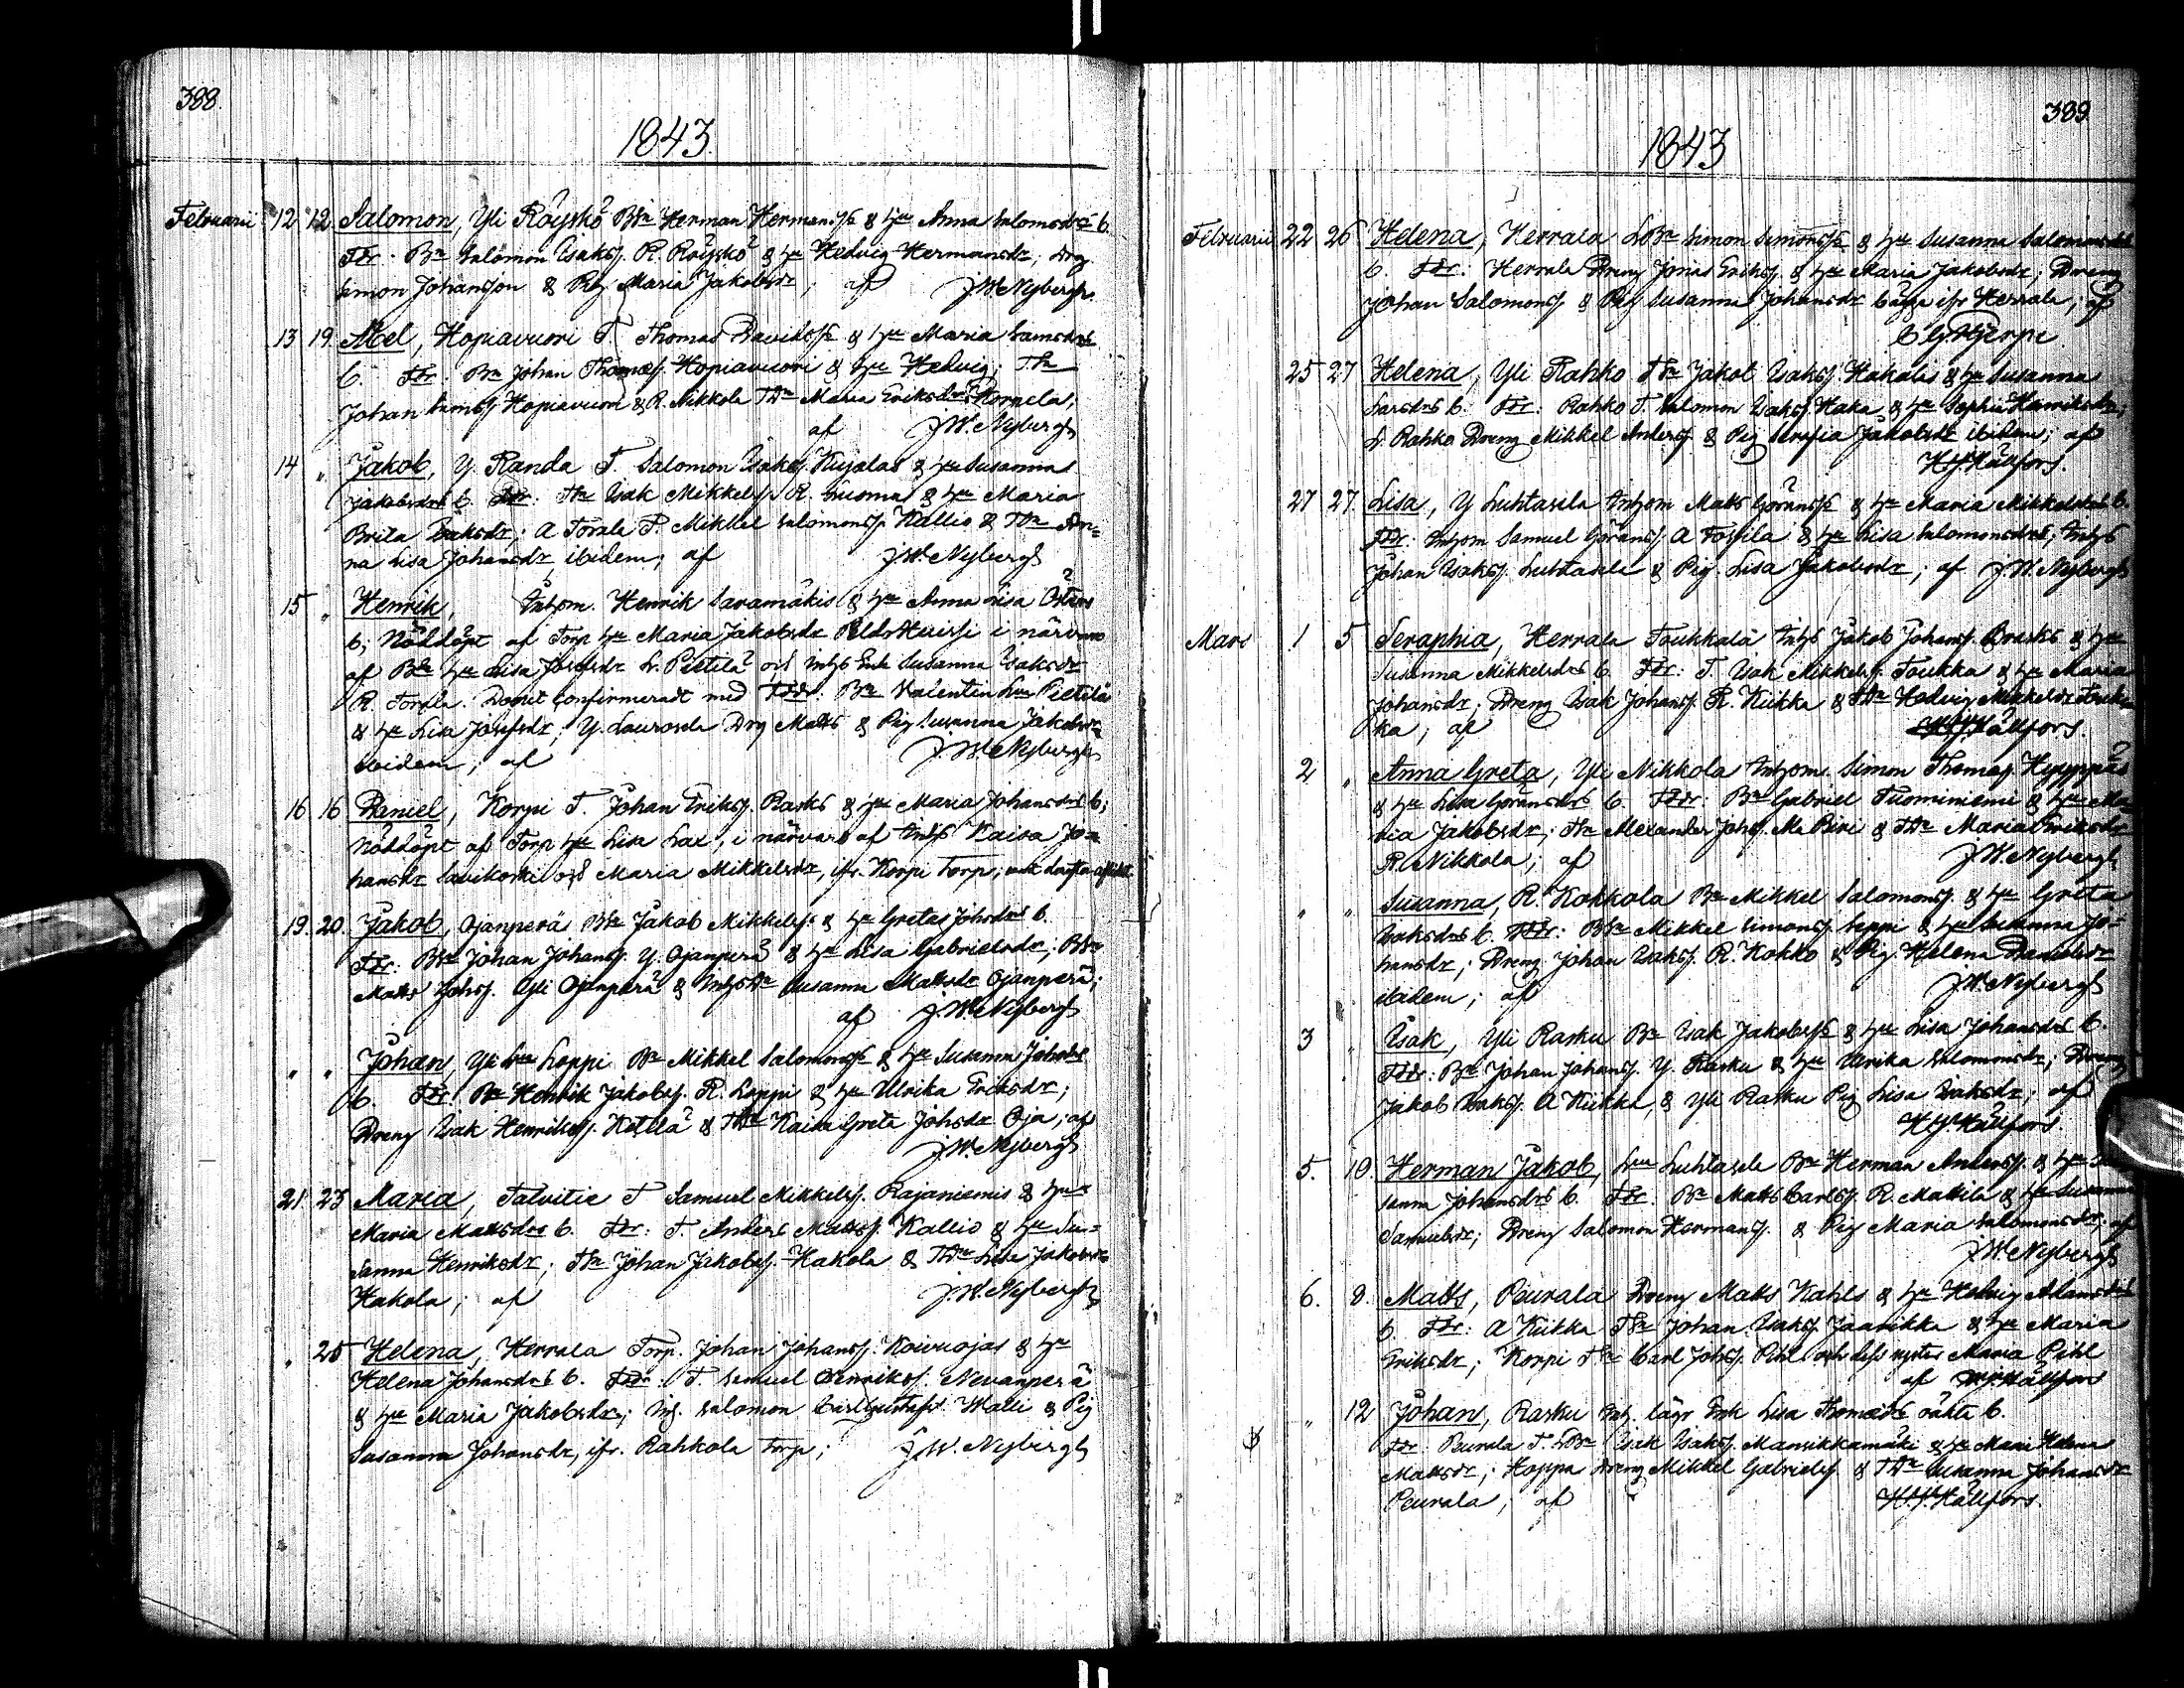 388.
1843.
Februarii 12 12 Salomon, Yli Röyskö Bsn Herman Hermanss & hu Anna Salomonsdrs b.
Fdr. Bn Salomon Isakss. R. Röyskö & hu Hedvig Hermansdr; Drg.
Simon Johansson & Pig Maria Jakobsdr; af J.W. Nybergh.
13 19 Abel, Hopiavuori T. Thomas Davidss & hu Maria Samsdrs
b. Fdr. Bn Johan Thomass. Hopiavuori & hu Hedvig; Tsn
Johan Samss Hopiavuori & R. Nikkola TDr Maria Eriksdr Korpela;
af J.W. Nybergh
14 " Jakob, Y. Randa T. Salomon Isakss. Kujalas & hu Susanna
Jakobsdrs b. Fdr. Tsn Isak Mikkelss. R. Luoma & hu Maria
Brita Isaksdr; A Torala T. Mikkel Salomonss. Kallio & TDr An=
na Lisa Johansdr, ibidem; af J.W. Nybergh
15 " Henrik, Inhom. Henrik Saramäkis & hu Anna Lisa
b; Nöddöpt af Torp hu Maria Jakobsdr i närvaro
af Bde hu Lisa Josefsdr L. Pietilä och Inhs Enk Susanna Isaksdr
R. Torala. Dopet Confirmeradt med Fddr. Bn Valentin Lill Pietilä
& hu Lisa Josefsdr; Y. Laurosela Drg Matts & Pig Susanna Jakobsdr
ibidem; af J.W. Nybergh
16 16 Daniel, Korpi T. Johan Erikss. Rasks & hu Maria Johansdrs b;
Nöddöpt af Torp hu Lisa Lax, i närvaro af Inhs Kaisa Jo=
hansdr Savikoski och Maria Mikkelsdr, ifr. Korpi Torp;
19. 20. Jakob, Ojanperä Bsn Jakob Mikkelss. & hu Gretas Johsdrs b.
Fdr. Bsn Johan Johanss. Y. Ojanperä & hu Lisa Gabrielsdr; Bsn
Matts Johss. Yli Ojanperä & InhsDr Susanna Mattsdr Ojanperä;
af J.W. Nybergh
" " Johan, Yli Loppi Bn Mikkel Salomonss & hu Susanna Johsdrs
b. Fdr Bn Henrik Jakobss. R. Loppi & hu Ulrika Eriksdr;
Dreng Isak Henrikss. Ketola & TDr Kaisa Greta Johsdr Oja; af
J.W. Nybergh
21 23 Maria, Talvitie T Samuel Mikkelss. Rajaniemis & hu
Maria Mattsdrs b. Fdr: T. Anders Mattss. Kallio & hu Su=
sanna Henriksdr; Tsn Johan Jakobss. Hakola & TDr Lisa Jakobsdr
Hakola; af J.W. Nybergh
" 25 Helena, Herrala Torp. Johan Johanss. Koivuojas & hu
Helena Johansdrs b. Fdr. T. Samuel Henrikss. Nevanperä
& hu Maria Jakobsdr; Inh. Salomon Carl Gustafss. Walli & Pig
Susanna Johansdr, ifr. Rahkola torp; J.W. Nybergh
389
1843
Februarii 22 26 Helena, Herrala LBn Simon Simonss & hu Susanna Salomonsdrs
b. Fdr: Herrala Dreng Jonas Erikss. & hu Maria Jakobsdr; Dreng
Johan Salomonss & Pig Susanna Johansdr bägge ifr Herrala; af
C.G. Hjerpe
25 27 Helena, Yli Rahko Tsn Jakob Isakss Hakalis & hu Susanna
b. Fdr: Rahko T. Salomon Isakss. Haka & hu Sophia Henriksdr;
L. Rahko Dreng Mikkel Anderss & Pig Serafia Jakobsdr ibidem; af
H.J. Hällfors.
27 27 Lisa, Y Luhtasela Inhom Matts Göranss & hu Maria Mikkelsdrs b.
Fddr: Inhom Samuel Göranss A Torsila & hu Lisa Salomonsdr; Inhs
Johan Isakss. Luhtasela & Pig. Lisa Jakobsdr; af J.W. Nybergh
Mars 1 5 Seraphia, Herrala Toukkala Inhs Jakob Johanss. Brasks & hu
Susanna Mikkelsdrs b. Fdr: T. Isak Mikkelss. Toukka & hu Maria
Johansdr; Dreng Isak Johanss. R. Kiikka & TDr Hedvig Mikkelsdr Touk=
ka; af H.J. Hällfors.
2 " Anna Greta, Yli Nikkola Inhom. Simon Thomass. Hyyppäs
& hu Lisa Göransdrs b. Fddr: Bn Gabriel Tuominiemi & hu Ma=
ria Jakobsdr; Tsn Alexander Johss. & TDr Maria Eriksdr
R. Nikkola; af J.W. Nybergh
" " Susanna, R. Kokkola Bn Mikkel Salomonss. & hu Greta
Isaksdrs b. Fddr: Bsn Mikkel Simonss. Seppi & hu Susanna Jo=
hansdr; Dreng Johan Isakss. R. Kokko & Pig. Helena Danielsdr
ibidem; af J.W. Nybergh
3 " Isak, Yli Rasku Bn Isak Jakobss & hu Lisa Johansdrs b.
Fddr: Bn Johan Johanss. Y. Rasku & hu Ulrika Salomonsdr; Dreng
Jakob Isakss. A Kiikka, & Yli Rasku Pig Lisa Isaksdr; af
H.J. Hällfors.
5. 10. Herman Jakob, Luhtasela Bn Herman Anderss. & hu Su=
sanna Johansdrs b. Fdr. Bn Matts Carlss. R. Mattila & hu Susanna
Samuelsdr; Dreng Salomon Hermanss. & Pig Maria Salomonsdr; af
J.W. Nybergh
6. 8. Matts, Peurala Dreng Matts Kahls & hu Hedvig Adamsdrs
b. Fdr: A Kiikka Tsn Johan Isakss. Jaavikka & hu Maria
Eriksdr; Korpi Tsn Carl Johss. Pihl och dess syster Maria Pihl
af H.J. Hällfors
" 12 Johan, Rasku Inh. lägr Enk Lisa Thomasdrs oäkta b.
Fdr. Peurala T. LBn Isak Isakss. Mansikkamäki & hu Maria Helena
Mattsdr; Hoppa Dreng Mikkel Gabrielss. & TDr Susanna Johansdr
Peurala; af H.J. Hällfors.